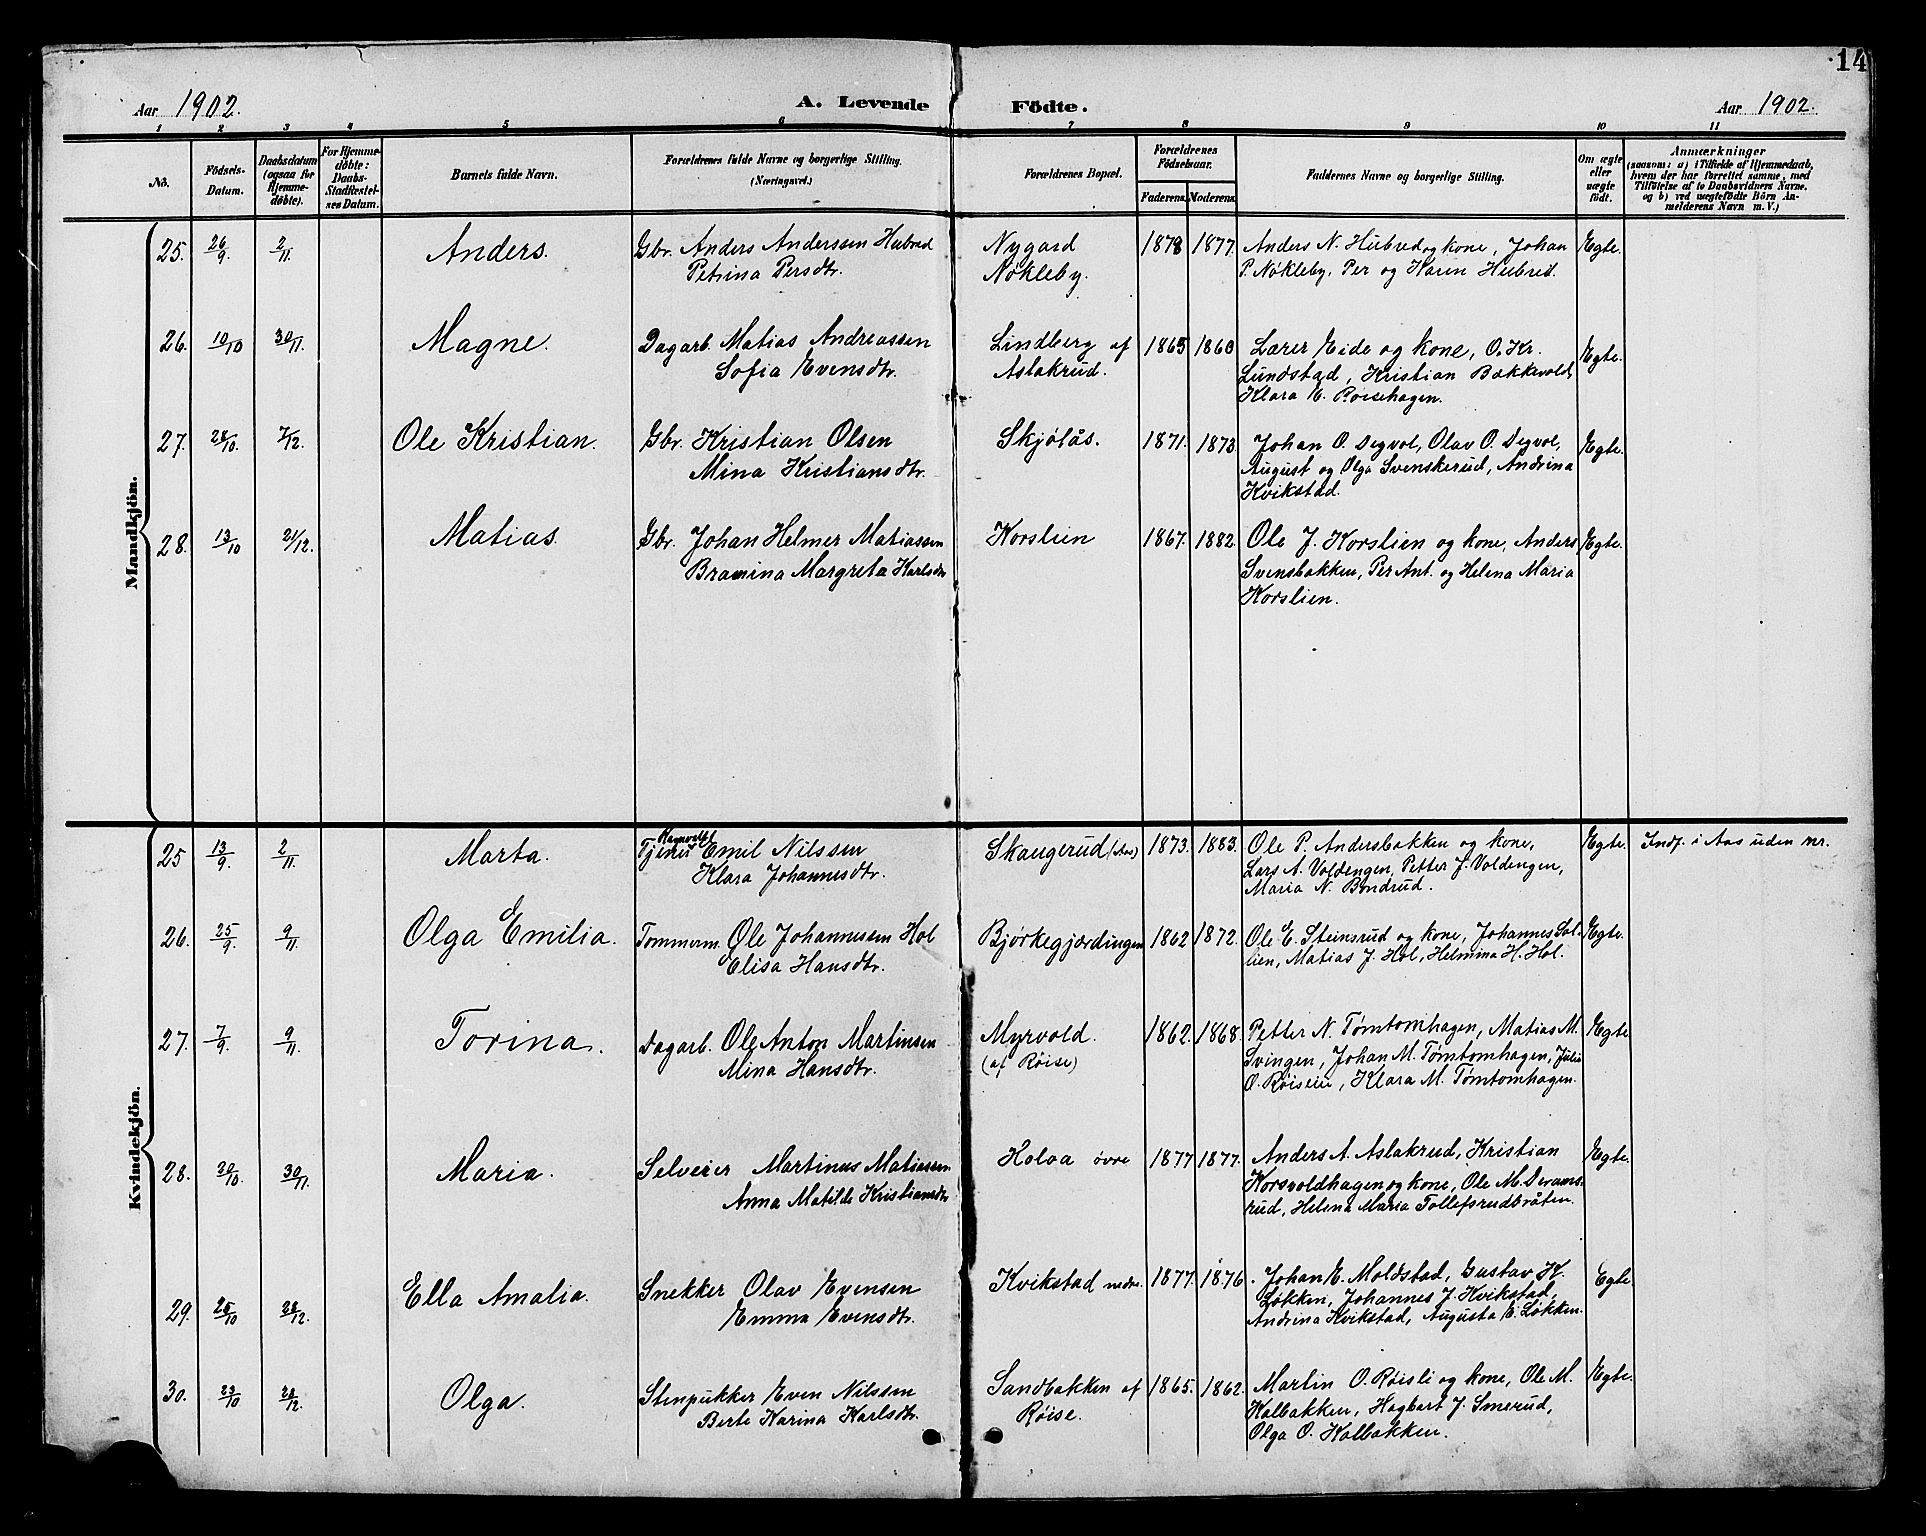 14
Aar 1902. A. Levende Födte. Aar 1902.
1 2 3 4 5 6 7 8 9 10 11
No. Födsels-Datum. Daabsdatum (ogsaa for Hjemme-døbte). For Hjemme-døbte: Daabs-Stadfæstel-ses Datum. Barnets fulde Navn. Forældrenes fulde Navne og borgerlige Stilling. (Næringsvei.) Forældrenes Bopæl. Forældrenes Födselsaar. Faderens. Moderens. Faddernes Navne og borgerlige Stilling. Om ægte eller uægte födt. Anmærkninger (saasom: a) i Tilfælde af Hjemmedaab, hvem der har forrettet samme, med Tilföielse af to Daabsvidners Navne, og b) ved uægtefödte Börn An-melderens Navn m. V.)
Mandkjön.
25. 26/9. 2/11. Anders. Gbr. Anders Anderssen Hubred Nygard 1878 1877. Anders N. Hubred og kone, Johan Egte.
Petrina Persdtr. Nøkleby. P. Nøkleby, Per og Karen Hubred.
26. 10/10 30/11. Magne. Dagarb. Matias Andreassen Lindberg af 1865 1860 Lærer Eide og kone, O. Kr. Egte.
Sofia Evensdtr. Aslakrud. Lundstad, Kristian Bækkevold,
Klara E. Røisehagen.
27. 28/10. 7/12. Ole Kristian. Gbr. Kristian Olsen Skjølås. 1871. 1873. Johan O. Degvol, Olav O. Degvol, Egte.
Mina Kristiansdtr. August og Olga Svenskerud, Andrina
Kvikstad.
28. 13/10 21/12. Matias. Gbr. Johan Helmer Matiassen Korslien 1867. 1882. Ole J. Korslien og kone, Anders Egte.
Bramina Margreta Karlsdtr Svensbakken, Per Ant. og Helena Maria
Korslien.
Kvindekjön.
25 13/9. 2/11. Marta. Tjener Emil Nilssen Skaugerud (Aas) 1873. 1883. Ole P. Andersbakken og kone, Egte. Indf. i Aas uden nr.
Klara Johannesdtr. Lars A. Voldengen, Petter J. Voldengen,
Maria N. Bondrud.
26. 25/9. 9/11. Olga Emilia. Tommerm. Ole Johannessen Hol Bjørkegjærdingen 1862 1872. Ole E. Steinsrud og kone, Johannes Sol- Egte.
Elisa Hansdtr. lien, Matias J. Hol, Helmina H. Hol.
27. 7/9. 9/11. Torina. Dagarb. Ole Anton Martinsen Myrvold. 1862. 1868. Petter N. Tømtomhagen, Matias M. Egte
Mina Hansdtr. (af Røise) Svingen, Johan M. Tømtomhagen, Julie
O. Røiseeie, Klara M. Tømtomhagen.
28. 20/10. 30/11. Maria. Selveier Martinus Matiassen Holoa øvre 1877 1877. Anders A. Aslakrud, Kristian Egte.
Anna Matilde Kristiansdtr Korsvoldhagen og kone, Ole M. Derams-
rud, Helena Maria Tollefsrudbråten.
29. 25/10 28/12. Ella Amalia. Snekker Olav Evensen Kvikstad nedre. 1877. 1876. Johan E. Moldstad, Gustav K. Egte
Emma Evensdtr. Løkken, Johannes J. Kvikstad,
Andrina Kvikstad, Augusta E. Løkken.
30. 23/10 28/12. Olga. Stenpukker Even Nilssen Sandbakken af 1865. 1862. Martin O. Røisli og kone, Ole M. Egte.
Berte Karina Karlsdtr. Røise. Kalbakken, Hagbart J. Smerud,
Olga O. Kalbakken.